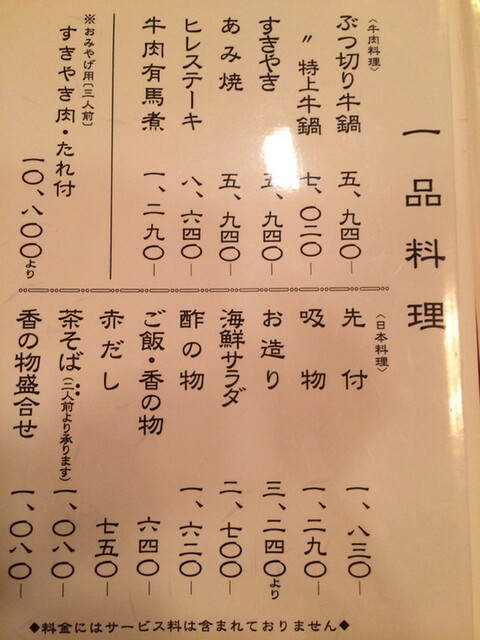 一品料理
〈牛肉料理〉
ぶつ切り牛鍋 五、九四〇―
〃 特上牛鍋 七、〇二〇―
すきやき 五、九四〇―
あみ焼 五、九四〇―
ヒレステーキ 八、六四〇―
牛肉有馬煮 一、二九〇―
※おみやげ用〔三人前〕
すきやき肉・たれ付 一〇、八〇〇より
〈日本料理〉
先付 一、八三〇―
吸物 一、二九〇―
お造り 三、二四〇より
海鮮サラダ 二、七〇〇―
酢の物 一、六二〇―
ご飯・香の物 六四〇―
赤だし 七五〇―
茶そば(二人前より承ります) 一、〇八〇―
香の物盛合せ 一、〇八〇―
◆料金にはサービス料は含まれておりません◆